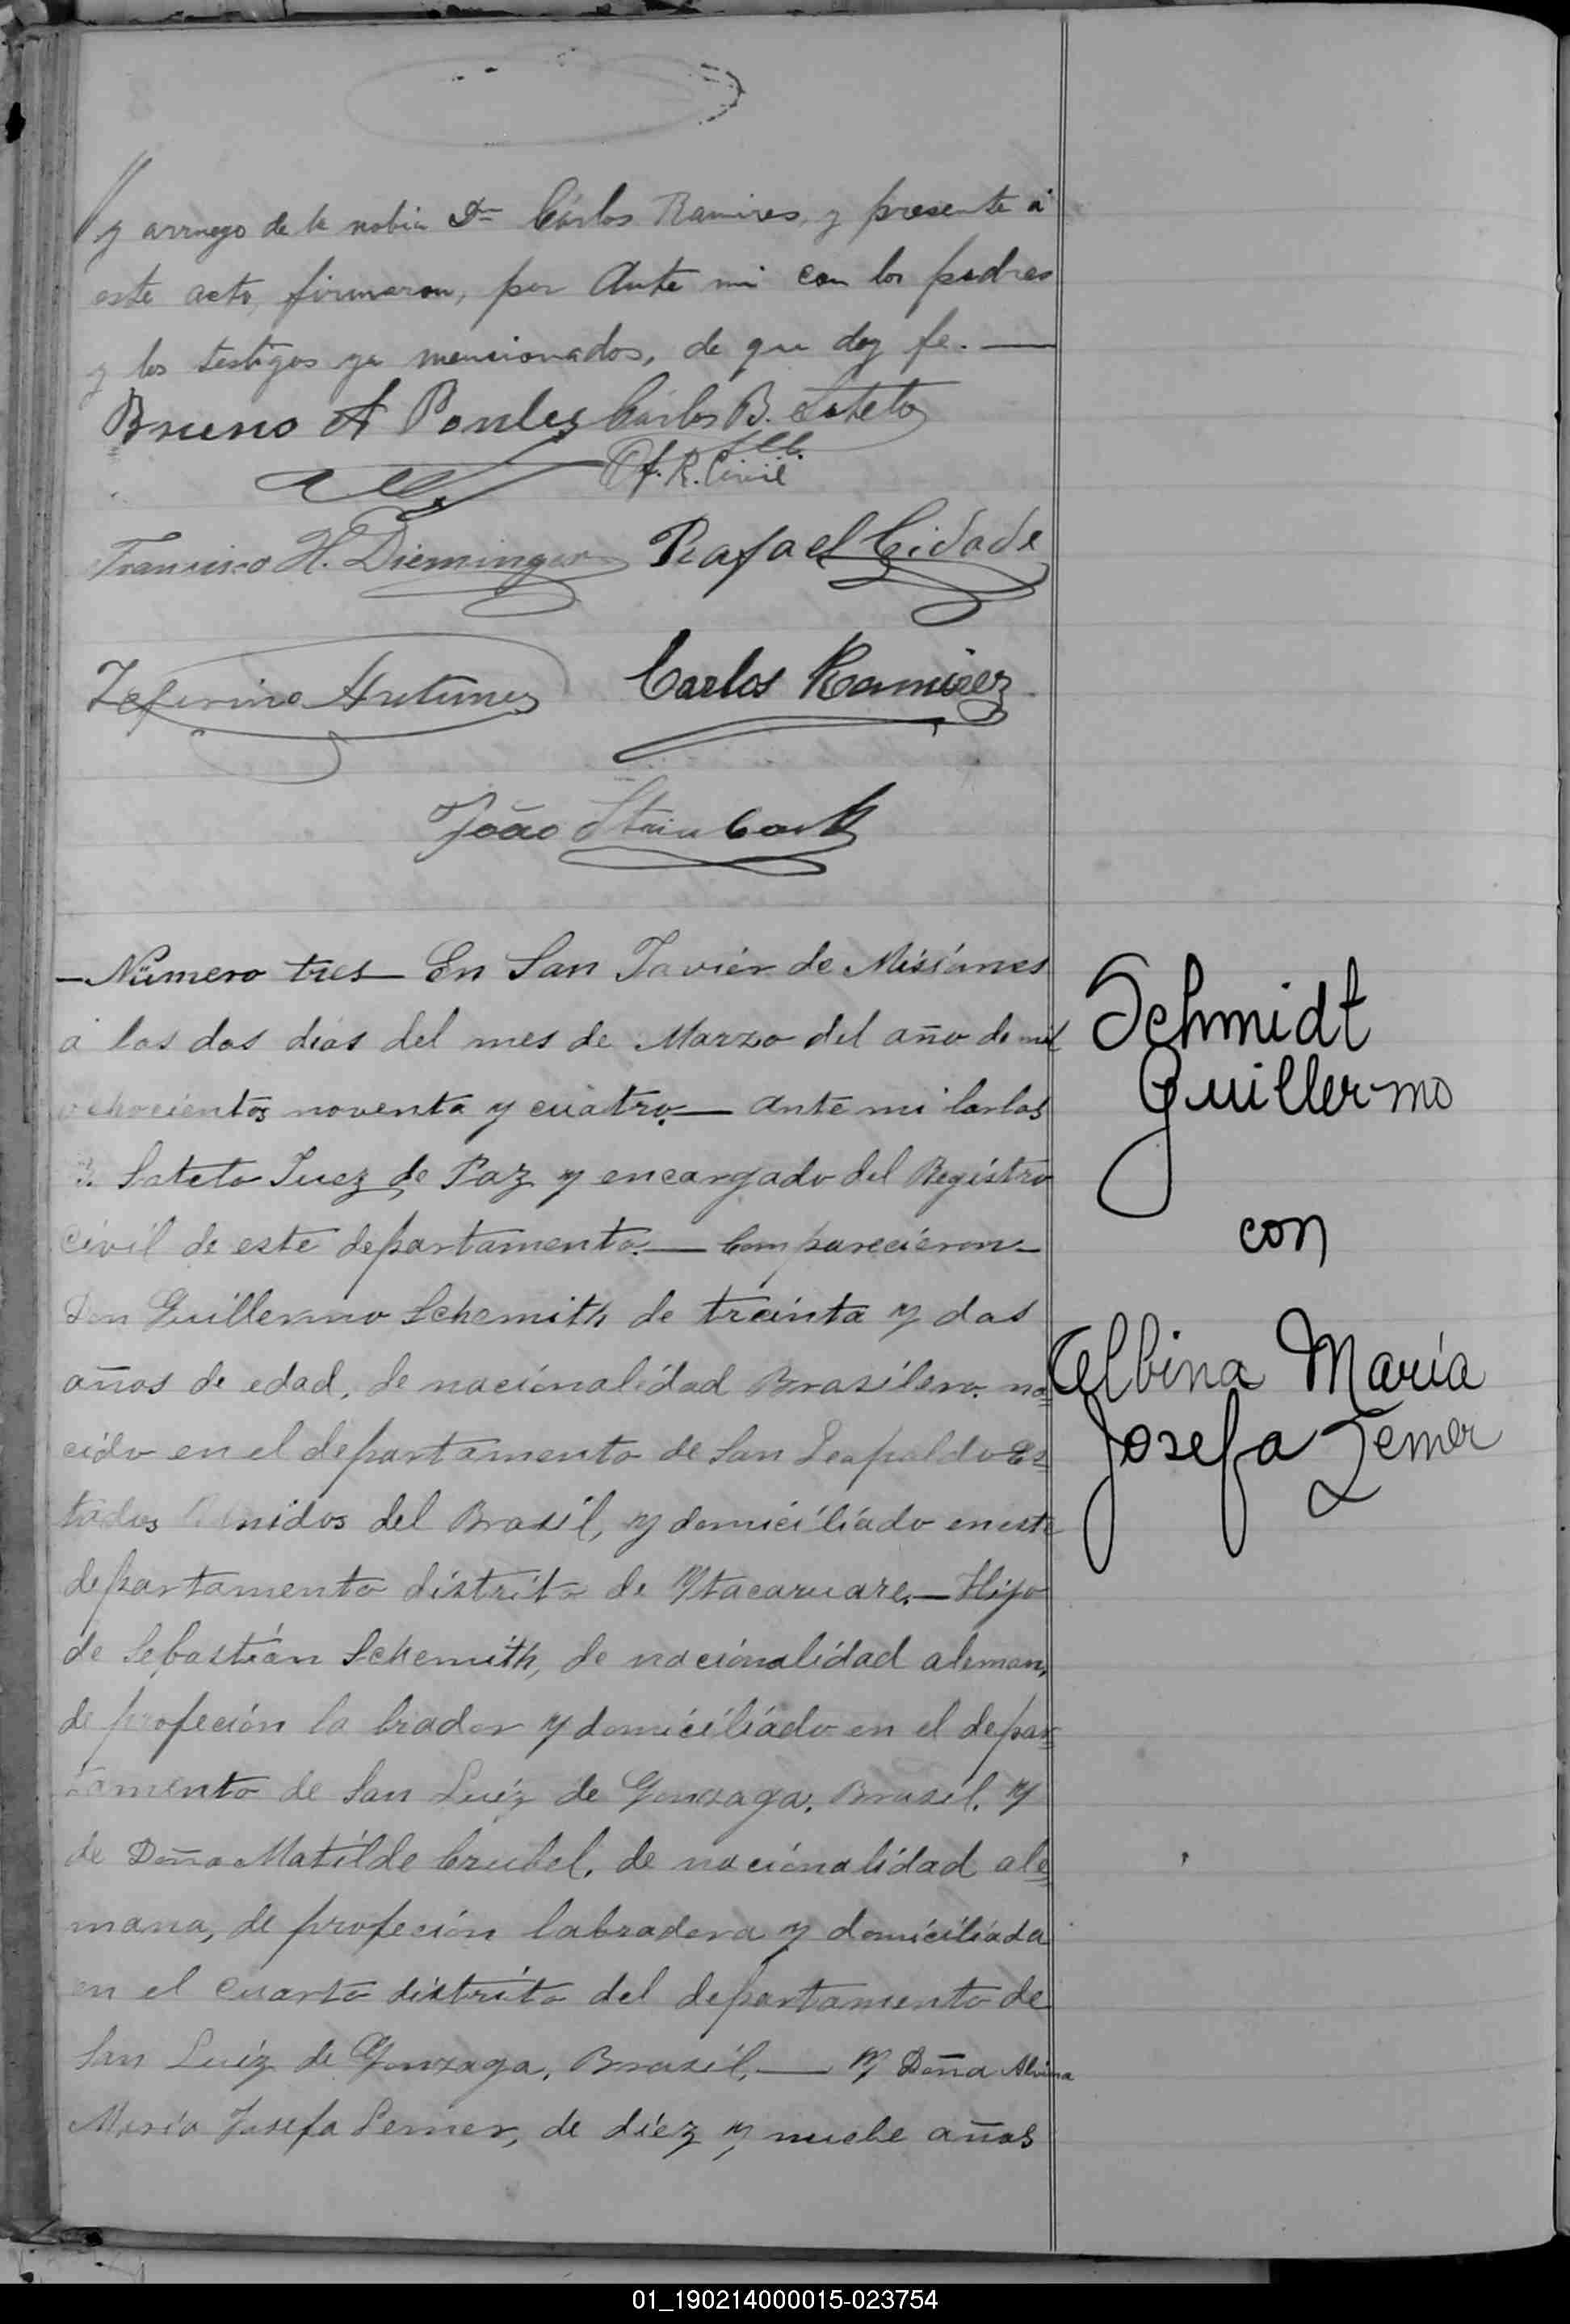 y arruego de la nobia Dn Cárlos Ramires, y presente á
este acto, firmaron, por Ante mi con los padres
y los testigos ya mencionados, de que doy fe. —
Bruno A Carlos B. Soteto
Of. R. Civil
Francisco H. Dieminger Rafael Cidade
Zeferino Antunes Carlos Ramirez
João
— Número tres — En San Javier de Misiones
á los dos dias del mes de Marzo del año de mil
ochocientos noventa y cuatro. — Ante mi Carlos
B. Soteto Juez de Paz y encargado del Registro
Civil de este departamento. — Comparecieron —
Don Guillermo Schemith de treinta y dos
años de edad, de nacionalidad Brasilero. na=
cido en el departamento de San Leopaldo Es=
tados Unidos del Brasil, y domiciliado en este
departamento distrito de Ytacaruare. — Hijo
de Sebastián Schemith, de nacionalidad aleman,
de profeción la brador y domiciliado en el depar=
tamento de San Luiz de Gonzaga, Brasil. y
de Doña Matilde Crubel, de nacionalidad ale=
mana, de profeción labradora y domiciliada
en el cuarto distrito del departamento de
San Luiz de Gonzaga, Brasil, — y Doña Alvina
María Josefa Lerner, de diez y nuebe años
Schmidt
Guillermo
con
Albina María
Josefa Lemer
01_190214000015-023754